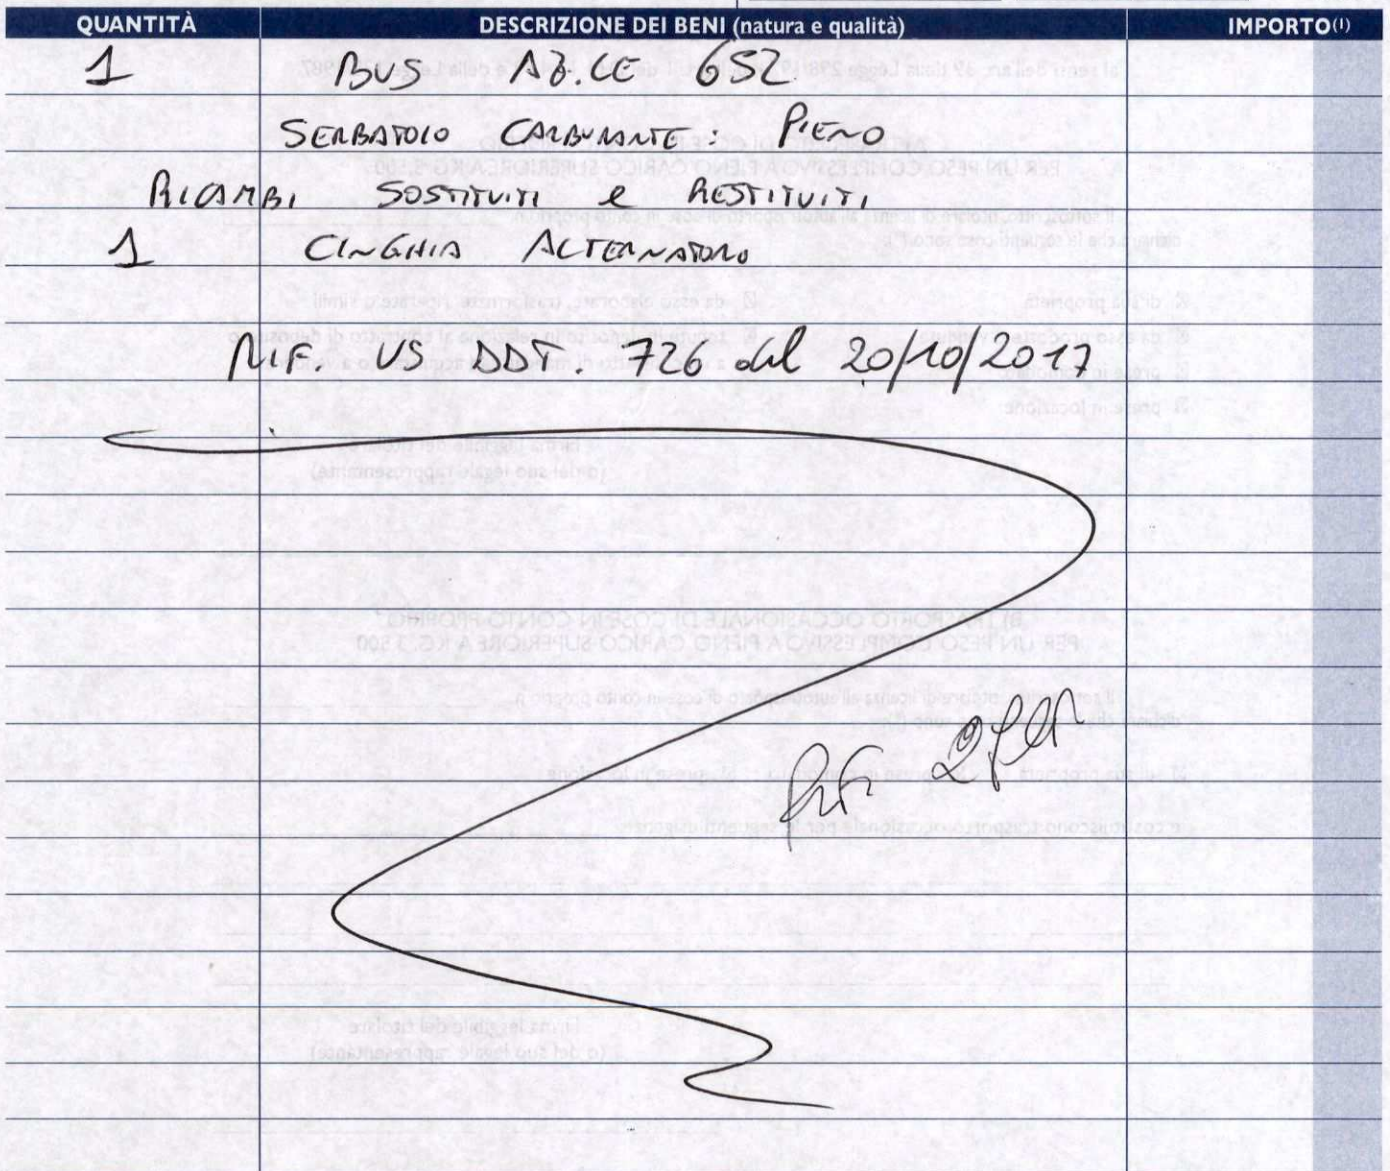 QUANTITÀ DESCRIZIONE DEI BENI (natura e qualità) IMPORTO(1)
1 BUS AZ.LE 652
SERBATOIO CARBURANTE: PIENO
RICAMBI SOSTITUITI e RESTITUITI
1 CINGHIA ALTERNATORE
RIF. VS DDT. 726 del 20/10/2017